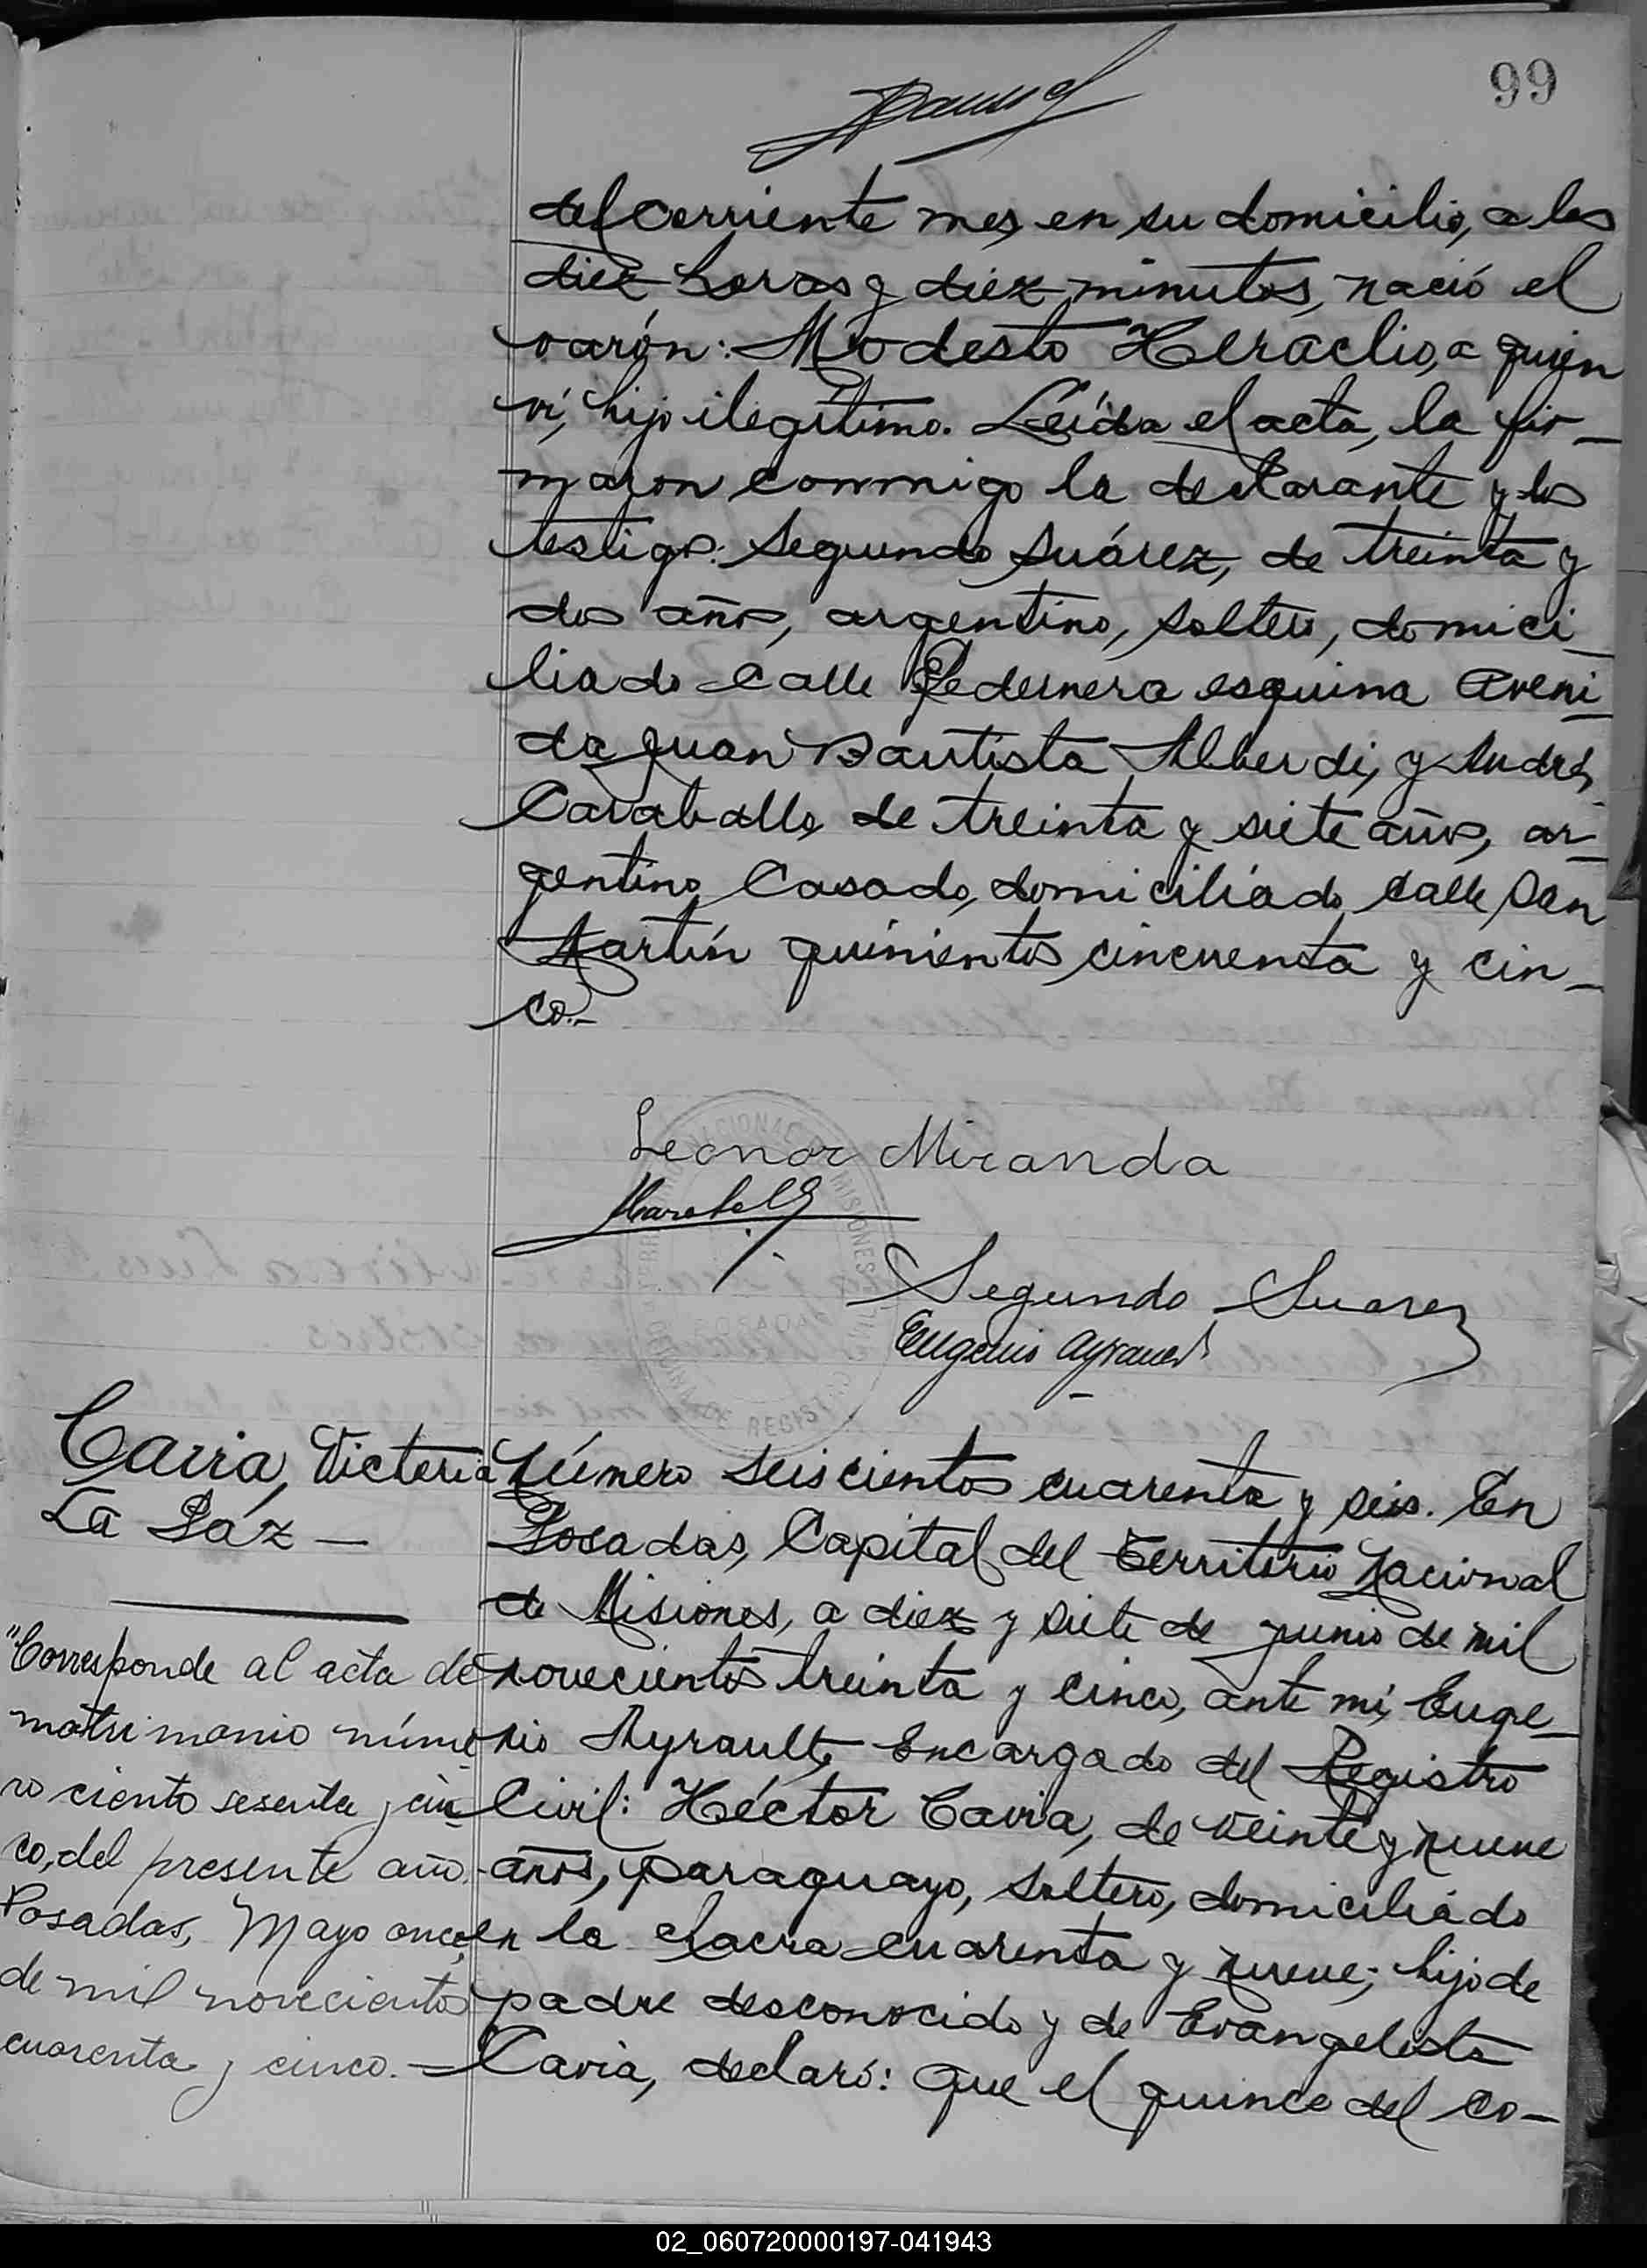 99
del corriente mes, en su domicilio, a las
diez horas y diez minutos, nació el
varón: Modesto Heraclio, a quien
ví, hijo ilegítimo. Leída el acta, la fir_
maron conmigo la declarante y los
testigos: Segundo Suárez, de treinta y
dos años, argentino, soltero, domici_
liado calle Pedernera esquina Aveni_
da Juan Bautista Alberdi, y Andrés
Caraballo, de treinta y siete años, ar_
gentino, casado, domiciliado calle San
Martín quinientos cincuenta y cin_
co.-
Leonor Miranda
Segundo Suarez
Eugenio Ayrault
POSADAS
Cavia, Victoria
La Páz —
"Corresponde al acta de
matrimonio núme_
ro ciento sesenta y cin_
co, del presente año.
Posadas, Mayo once,
de mil novecientos
cuarenta y cinco. —
Número seiscientos cuarenta y seis. En
Posadas, Capital del Territorio Nacional
de Misiones, a diez y siete de junio de mil
novecientos treinta y cinco, ante mí, Euge_
nio Ayrault, Encargado del Registro
Civil: Héctor Cavia, de veinte y nueve
años, paraguayo, soltero, domiciliado
en la chacra cuarenta y nueve; hijo de
padre desconocido y de Evangelista
Cavia, declaró: Que el quince del co—
02_060720000197-041943